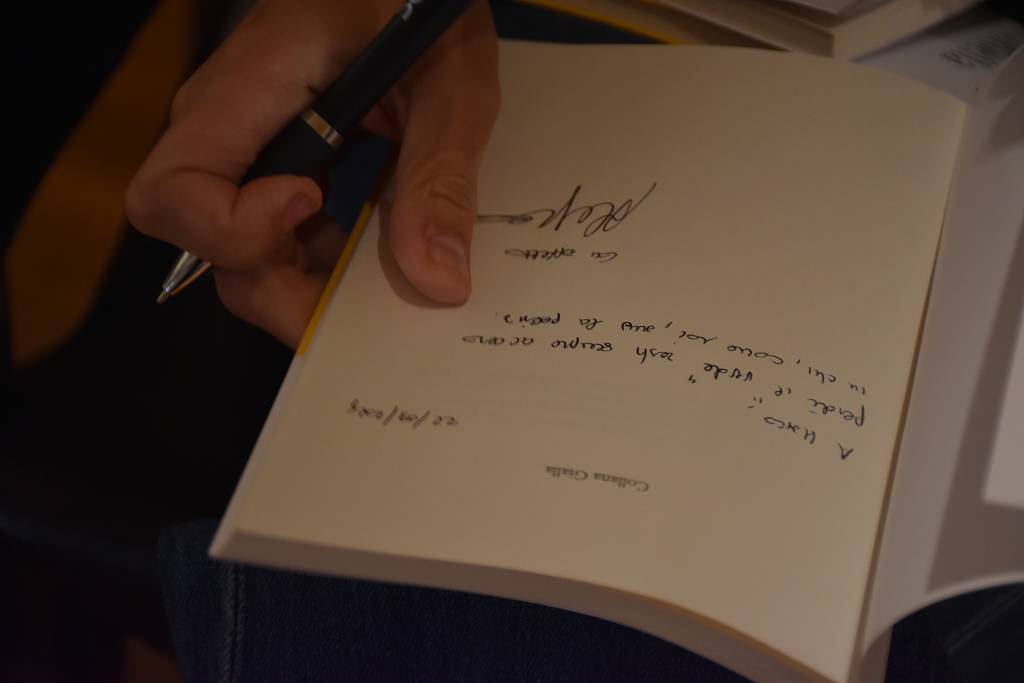 Collana Gialla
A Marco:
perché il "verde" resti sempre acceso
in chi, come noi, ama la poesia.
Con affetto